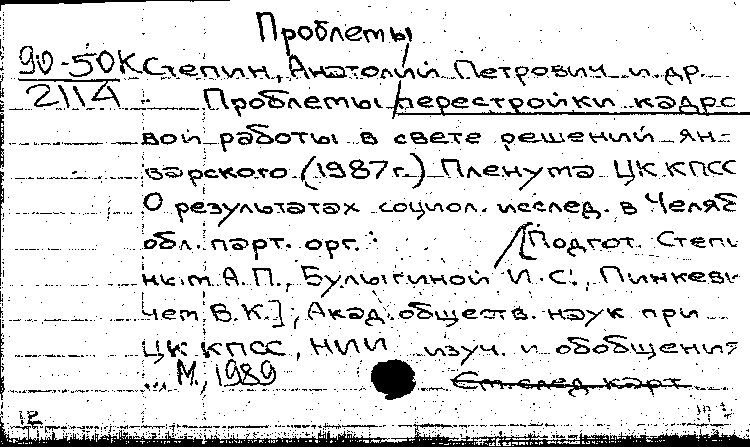 Проблемы
90-50К Степин, Анатолий Петрович и др.
2114 Проблемы перестройки кадро
вой работы в свете решений ян-
варского (1987г.) Пленума ЦК КПСС
О результатах социол. исслед. в Челяб
обл. парт. орг. : [Подгот. Степи
ным А.П., Булыгиной И.С., Пинкеви
чем В.К.]; Акад. обществ. наук при
ЦК КПСС, НИИ изуч. и обобщения
... М., 1989 См след карт
12